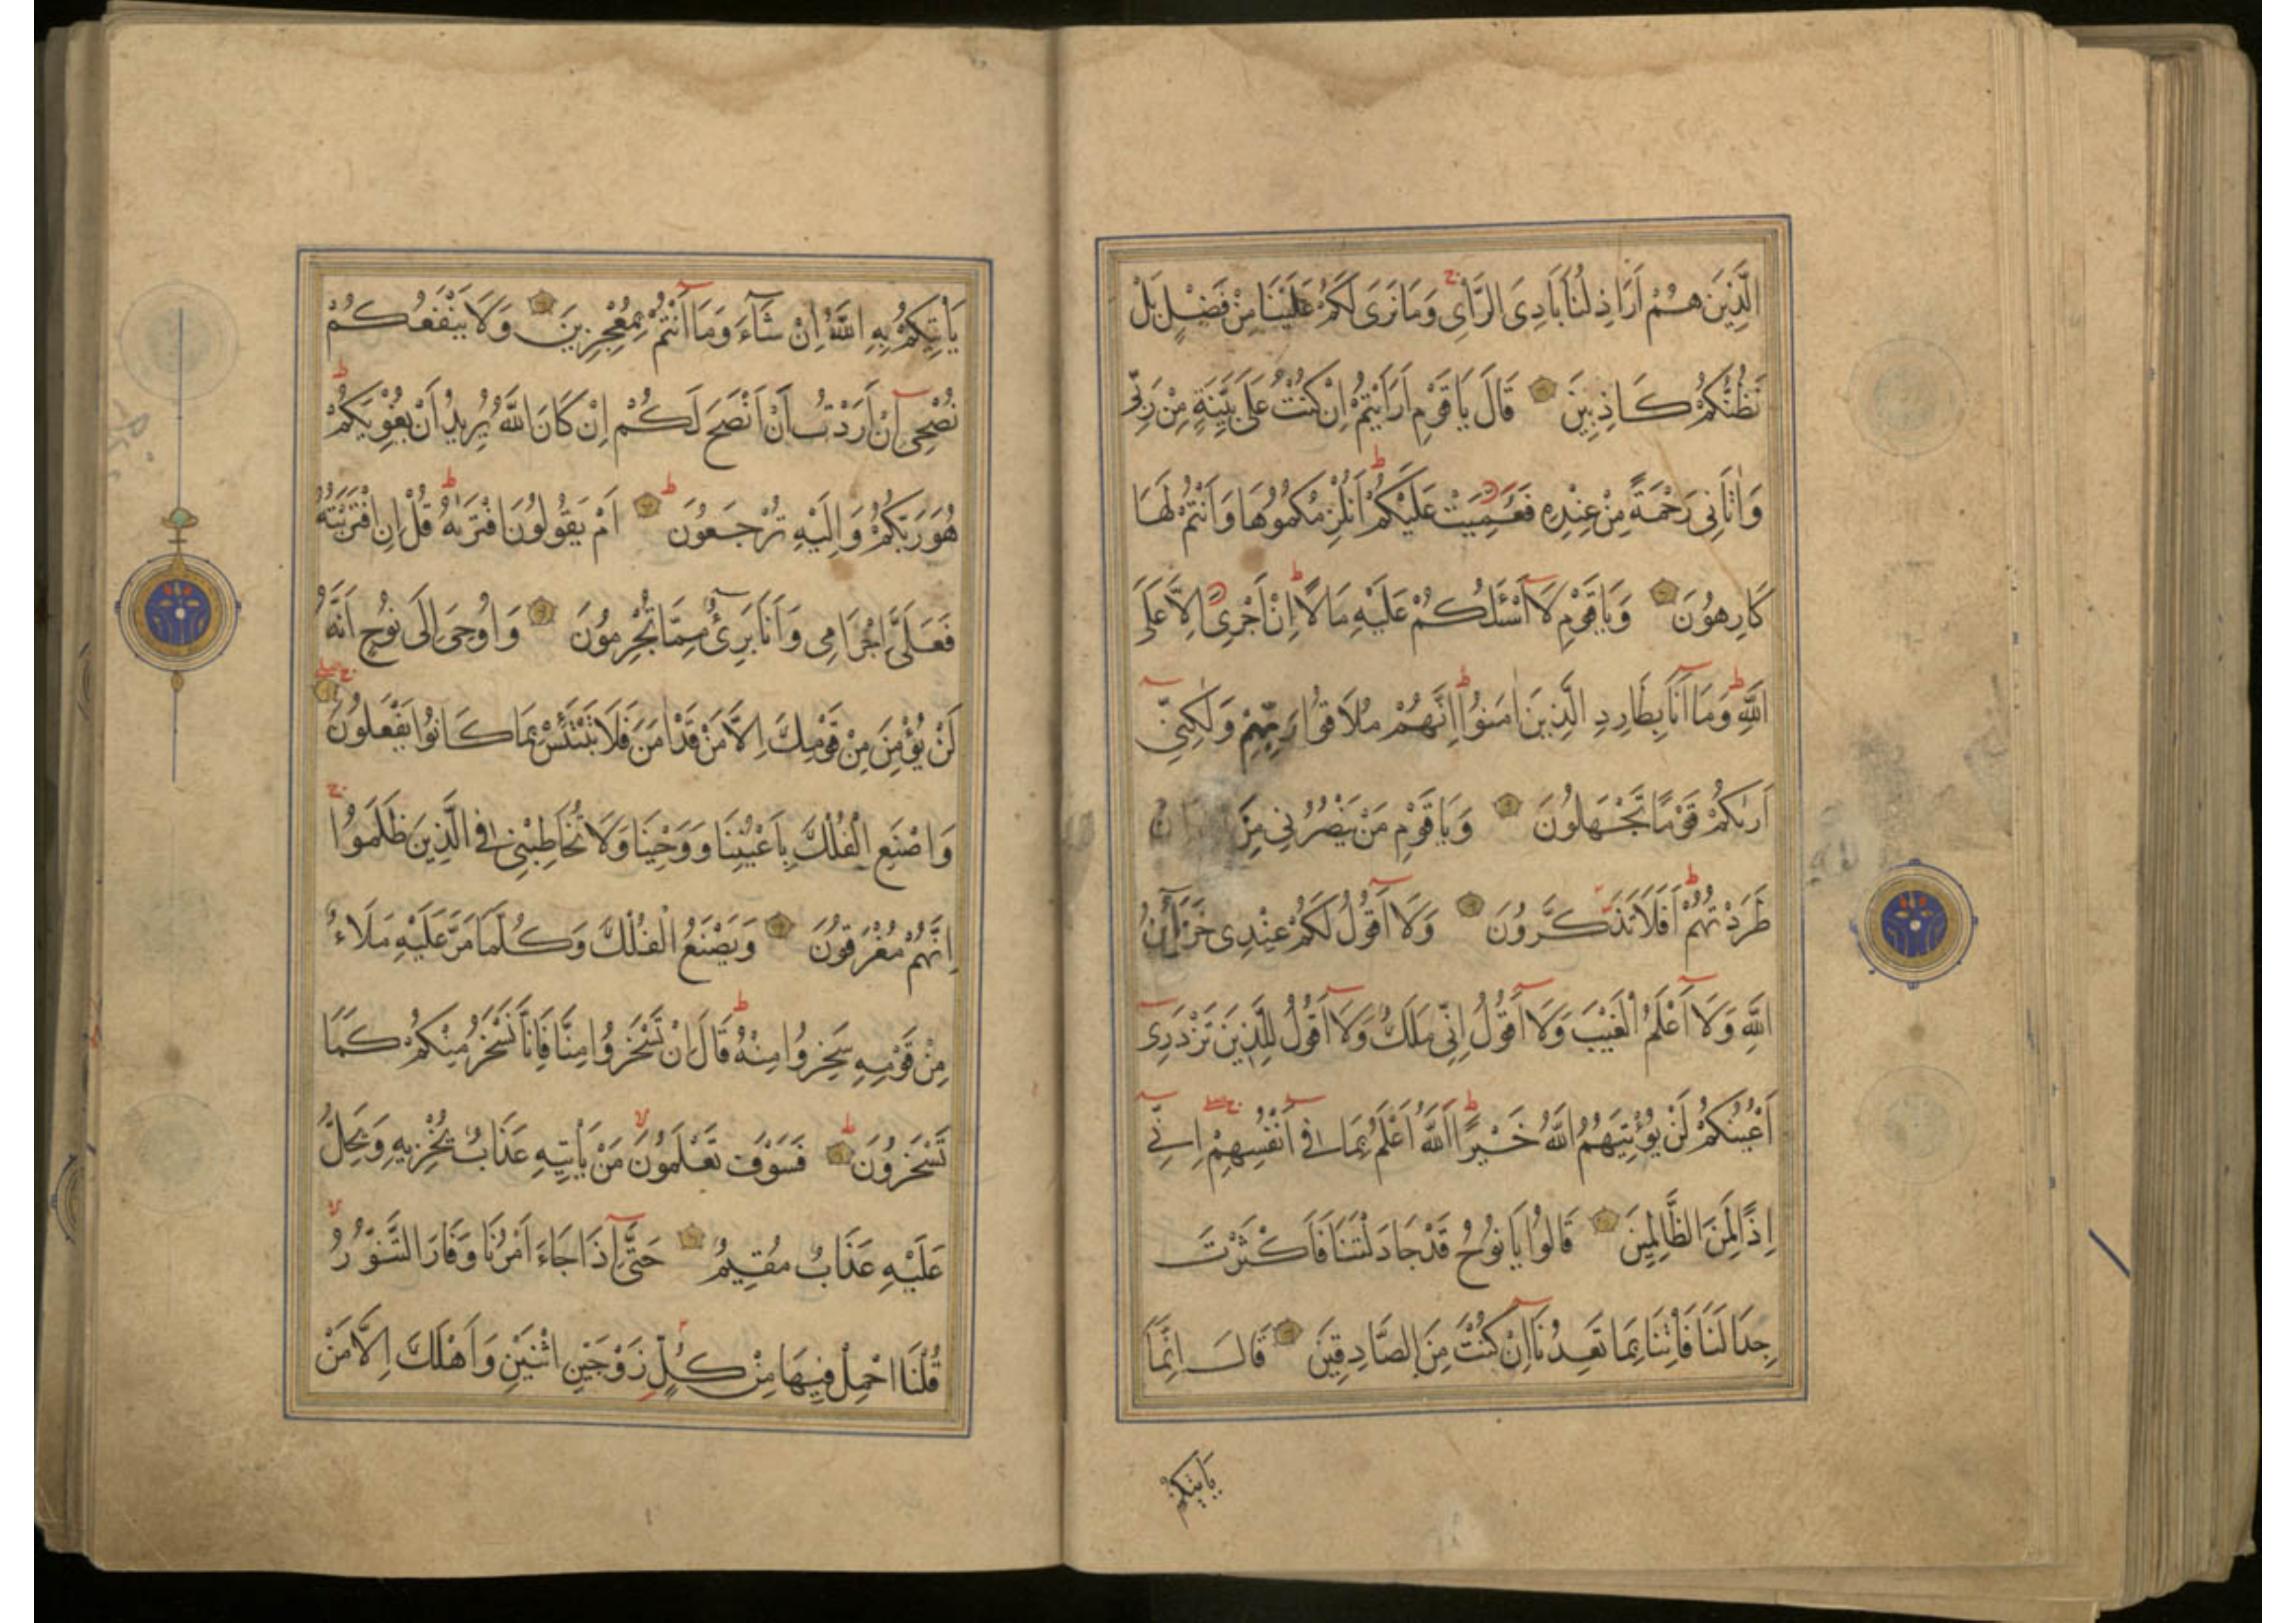 الَّذِينَ هُمْ اَرَاذِلُنَا بَادِىَ الرَّاْىِ ج وَمَا نَرَى لَكُمْ عَلَيْنَا مِنْ فَضْلٍ بَلْ
نَظُنُّكُمْ كَاذِبِينَ قَالَ يَا قَوْمِ اَرَاَيْتُمْ اِنْ كُنْتُ عَلَى بَيِّنَةٍ مِنْ رَبِّى
وَاٰتَانِى رَحْمَةً مِنْ عِنْدِهِ فَعُمِّيَتْ عَلَيْكُمْ ط اَنُلْزِمُكُمُوهَا وَاَنْتُمْ لَهَا
كَارِهُونَ وَيَا قَوْمِ لَا اَسْئَلُكُمْ عَلَيْهِ مَالًا ط اِنْ اَجْرِىَ اِلَّا عَلَى
اللَّهِ ط وَمَا اَنَا بِطَارِدِ الَّذِينَ اٰمَنُوا ط اِنَّهُمْ مُلَاقُوا رَبِّهِمْ وَلٰكِنِّى
اَرٰىكُمْ قَوْمًا تَجْهَلُونَ وَيَا قَوْمِ مَنْ يَنْصُرُنِى مِنَ اِنْ
طَرَدْتُهُمْ ط اَفَلَا تَذَكَّرُونَ وَلَا اَقُولُ لَكُمْ عِنْدِى خَزَائِنُ
اللَّهِ وَلَا اَعْلَمُ الْغَيْبَ وَلَا اَقُولُ اِنِّى مَلَكٌ وَلَا اَقُولُ لِلَّذِينَ تَزْدَرِى
اَعْيُنُكُمْ لَنْ يُؤْتِيَهُمُ اللَّهُ خَيْرًا ط اَللَّهُ اَعْلَمُ بِمَا فِى اَنْفُسِهِمْ اِنِّى
اِذًا لَمِنَ الظَّالِمِينَ قَالُوا يَا نُوحُ قَدْ جَادَلْتَنَا فَاَكْثَرْتَ
جِدَالَنَا فَاْتِنَا بِمَا تَعِدُنَا اِنْ كُنْتَ مِنَ الصَّادِقِينَ قَالَ اِنَّمَا
يَاْتِيكُمْ
يَاْتِيكُمْ بِهِ اللَّهُ اِنْ شَاءَ وَمَا اَنْتُمْ بِمُعْجِزِينَ وَلَا يَنْفَعُكُمْ
نُصْحِى اِنْ اَرَدْتُ اَنْ اَنْصَحَ لَكُمْ اِنْ كَانَ اللَّهُ يُرِيدُ اَنْ يُغْوِيَكُمْ ط
هُوَ رَبُّكُمْ وَاِلَيْهِ تُرْجَعُونَ ط اَمْ يَقُولُونَ افْتَرٰيهُ ط قُلْ اِنِ افْتَرَيْتُهُ
فَعَلَىَّ اِجْرَامِى وَاَنَا بَرِىءٌ مِمَّا تُجْرِمُونَ وَاُوحِىَ اِلَى نُوحٍ اَنَّهُ
لَنْ يُؤْمِنَ مِنْ قَوْمِكَ اِلَّا مَنْ قَدْ اٰمَنَ فَلَا تَبْتَئِسْ بِمَا كَانُوا يَفْعَلُونَ
وَاصْنَعِ الْفُلْكَ بِاَعْيُنِنَا وَوَحْيِنَا وَلَا تُخَاطِبْنِى فِى الَّذِينَ ظَلَمُوا ج
اِنَّهُمْ مُغْرَقُونَ وَيَصْنَعُ الْفُلْكَ وَكُلَّمَا مَرَّ عَلَيْهِ مَلَاءٌ
مِنْ قَوْمِهِ سَخِرُوا مِنْهُ ط قَالَ اِنْ تَسْخَرُوا مِنَّا فَاِنَّا نَسْخَرُ مِنْكُمْ كَمَا
تَسْخَرُونَ ط فَسَوْفَ تَعْلَمُونَ لا مَنْ يَاْتِيهِ عَذَابٌ يُخْزِيهِ وَيَحِلُّ
عَلَيْهِ عَذَابٌ مُقِيمٌ حَتَّى اِذَا جَاءَ اَمْرُنَا وَفَارَ التَّنُّورُ لا
قُلْنَا احْمِلْ فِيهَا مِنْ كُلٍّ زَوْجَيْنِ اثْنَيْنِ وَاَهْلَكَ اِلَّا مَنْ